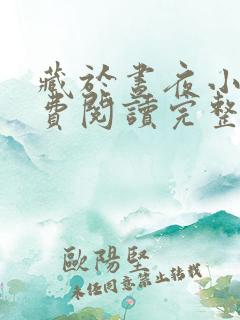 藏於晝夜小
費閱讀完整
歐陽堅
未任同意禁止轉載